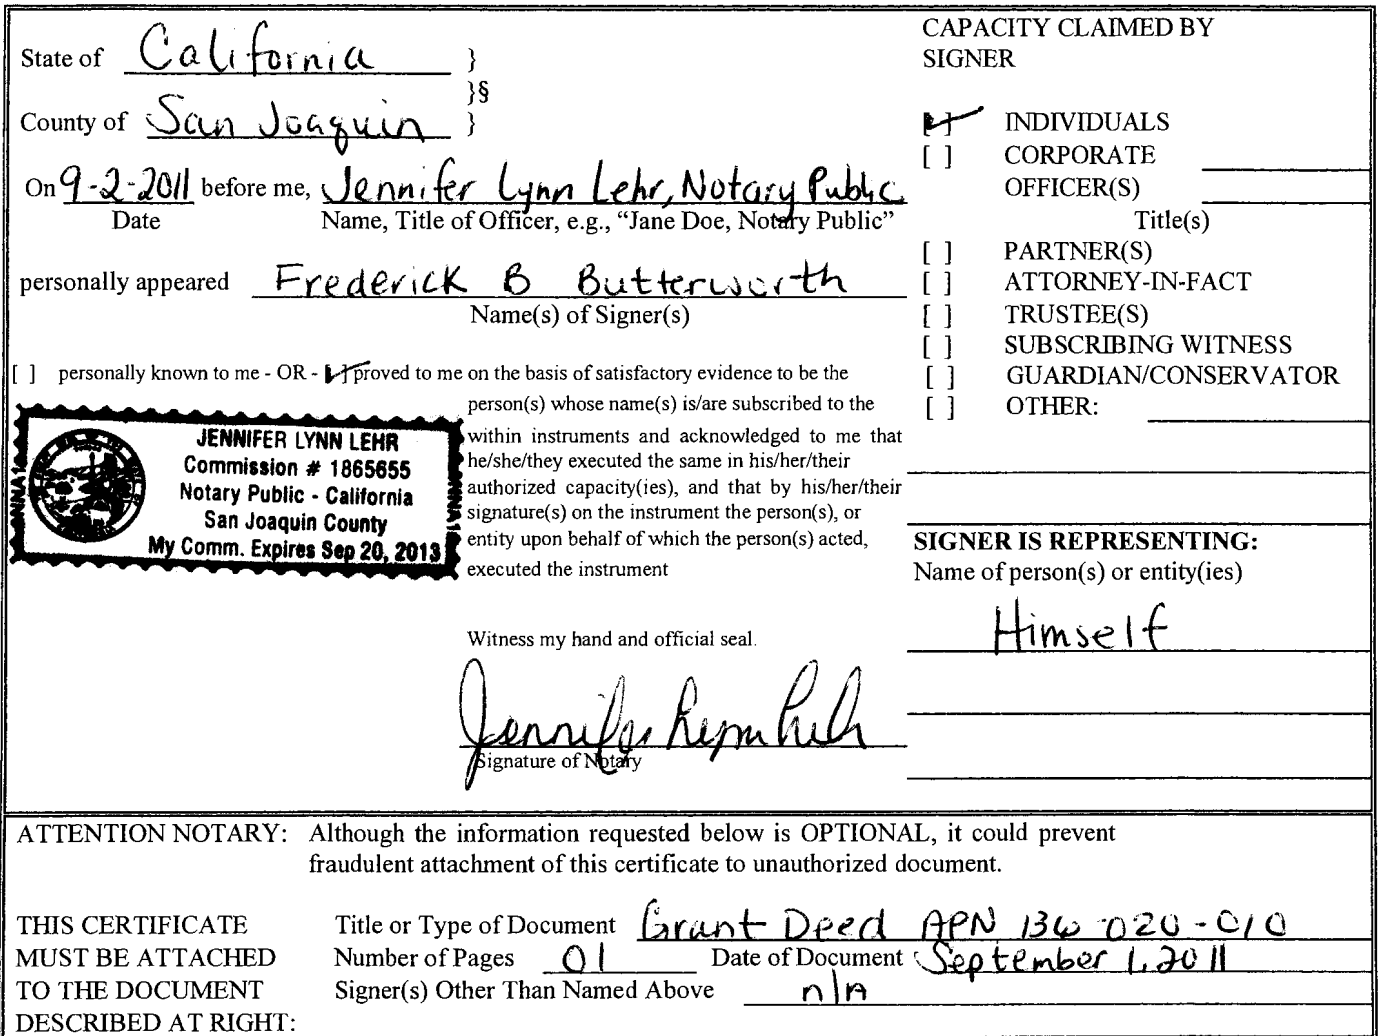 State of California }
}§
County of San Joaquin }
On 9-2-2011 before me, Jennifer Lynn Lehr, Notary Public
Date Name, Title of Officer, e.g., “Jane Doe, Notary Public”
personally appeared Frederick B Butterworth
Name(s) of Signer(s)
[ ] personally known to me - OR - [✓] proved to me on the basis of satisfactory evidence to be the
person(s) whose name(s) is/are subscribed to the
within instruments and acknowledged to me that
he/she/they executed the same in his/her/their
authorized capacity(ies), and that by his/her/their
signature(s) on the instrument the person(s), or
entity upon behalf of which the person(s) acted,
executed the instrument
JENNIFER LYNN LEHR
Commission # 1865655
Notary Public - California
San Joaquin County
My Comm. Expires Sep 20, 2013
Witness my hand and official seal.
Jennifer Lynn Lehr
Signature of Notary
CAPACITY CLAIMED BY
SIGNER
[✓] INDIVIDUALS
[ ] CORPORATE
OFFICER(S)
Title(s)
[ ] PARTNER(S)
[ ] ATTORNEY-IN-FACT
[ ] TRUSTEE(S)
[ ] SUBSCRIBING WITNESS
[ ] GUARDIAN/CONSERVATOR
[ ] OTHER:
SIGNER IS REPRESENTING:
Name of person(s) or entity(ies)
Himself
ATTENTION NOTARY: Although the information requested below is OPTIONAL, it could prevent
fraudulent attachment of this certificate to unauthorized document.
THIS CERTIFICATE Title or Type of Document Grant Deed APN 136-020-010
MUST BE ATTACHED Number of Pages 01 Date of Document September 1, 2011
TO THE DOCUMENT Signer(s) Other Than Named Above n/a
DESCRIBED AT RIGHT: